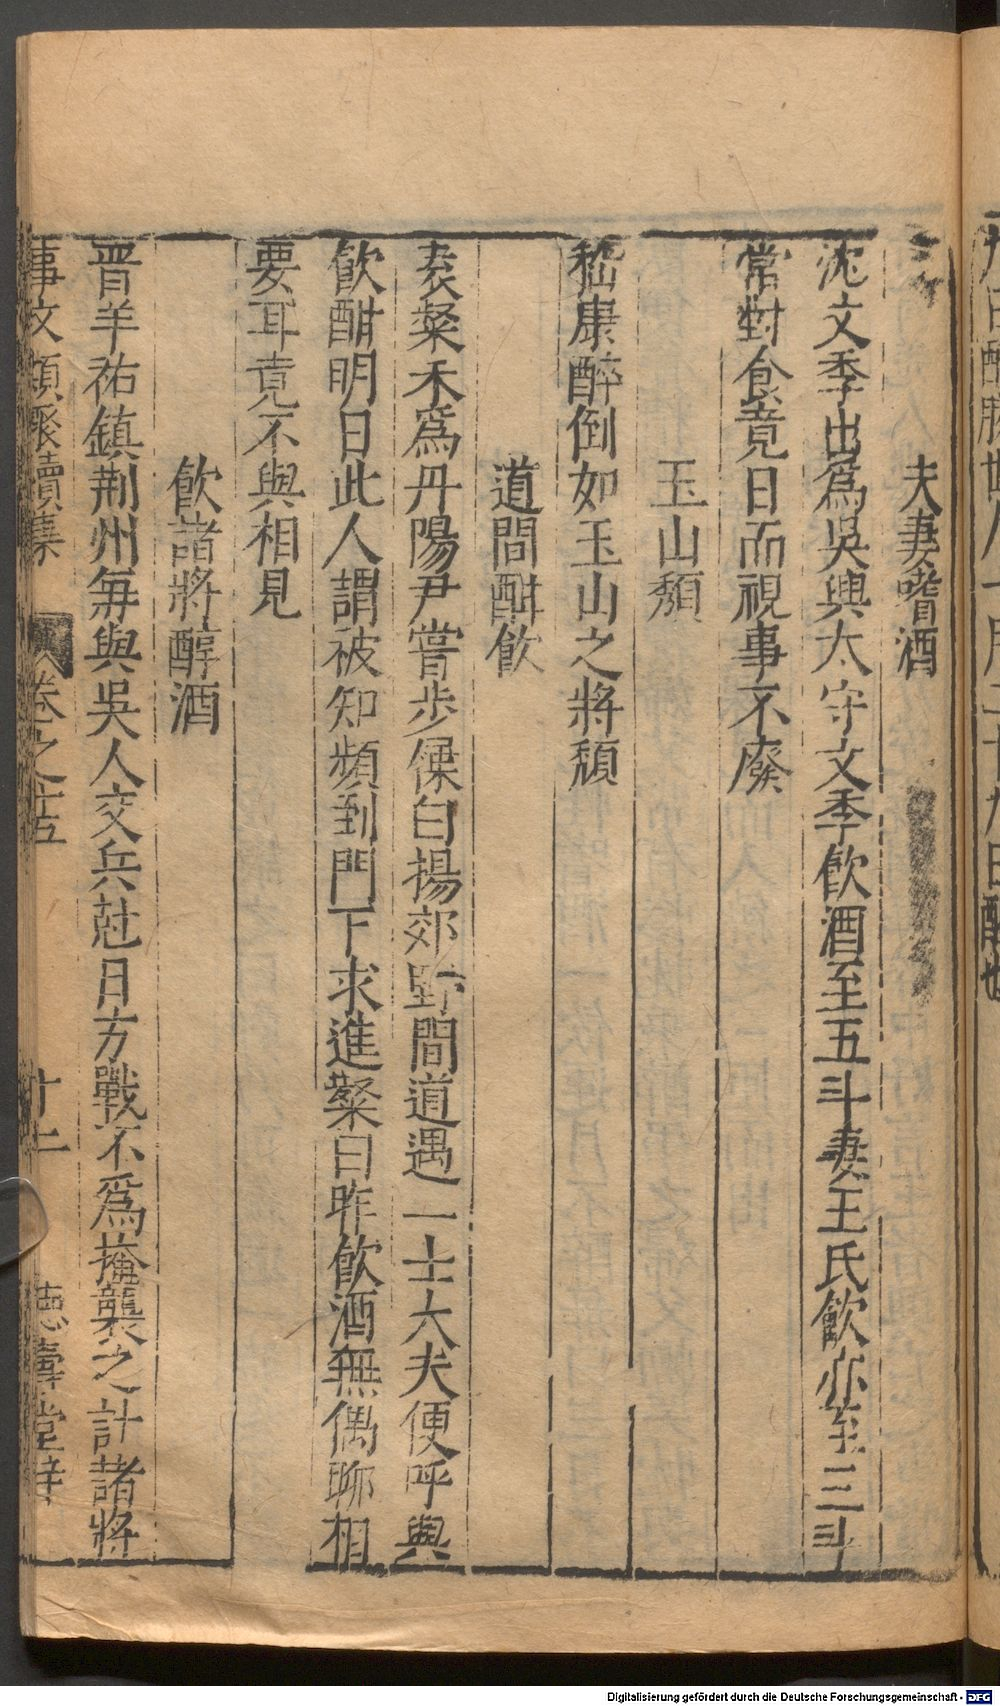 夫妻嗜酒
沈文季出爲吳興太守文季飲酒至五斗妻王氏飲亦至三斗
常對食竟日而視事不廢
玉山頹
嵇康醉倒如玉山之將頹
道間酣飲
袁粲禾爲丹陽尹嘗步屧白揚郊野間道遇一士大夫便呼與
飲酣明日此人謂被知頻到門下求進粲曰昨飲酒無偶聊相
要耳竟不與相見
飲諸將醇酒
晉羊祐鎮荆州每與吳人交兵尅日方戰不爲掩襲之計諸將
事文類聚續集 卷之十五 德壽堂梓
Digitalisierung gefördert durch die Deutsche Forschungsgemeinschaft - DFG